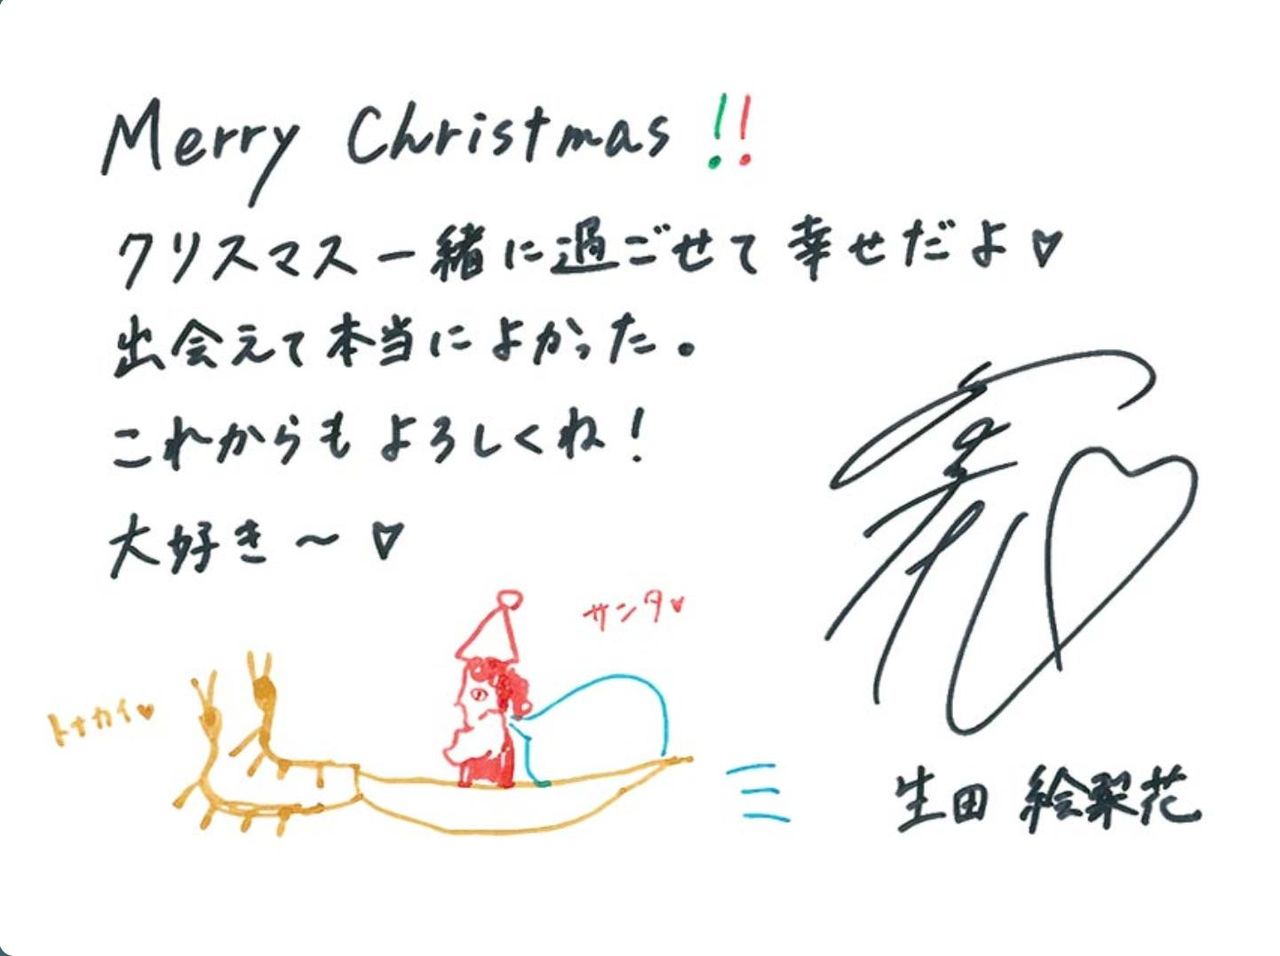 Merry Christmas!!
クリスマス一緒に過ごせて幸せだよ♡
出会えて本当によかった。
これからもよろしくね!
大好き〜♡
サンタ♥
トナカイ♥
生田 絵梨花